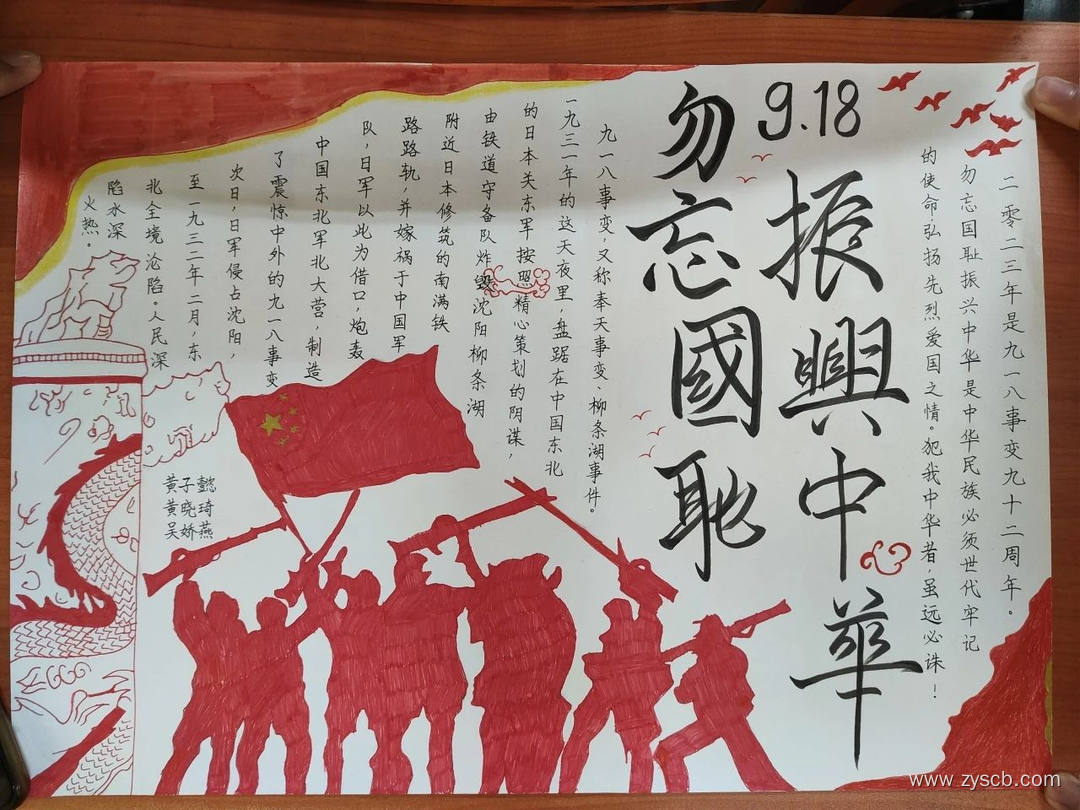 二零二三年是九一八事变九十二周年。
勿忘国耻振兴中华是中华民族必须世代牢记
的使命弘扬先烈爱国之情。犯我中华者，虽远必诛！
9.18
振興中華
勿忘國耻
九一八事变，又称奉天事变、柳条湖事件。
一九三一年的这天夜里，盘踞在中国东北
的日本关东军按照精心策划的阴谋，
由铁道守备队炸毁沈阳柳条湖
附近日本修筑的南满铁
路路轨，并嫁祸于中国军
队，日军以此为借口，炮轰
中国东北军北大营，制造
了震惊中外的九一八事变
次日，日军侵占沈阳，
至一九三二年二月，东
北全境沦陷。人民深
陷水深
火热。
黄子懿
黄晓琦
吴娇燕
www.zyscb.com